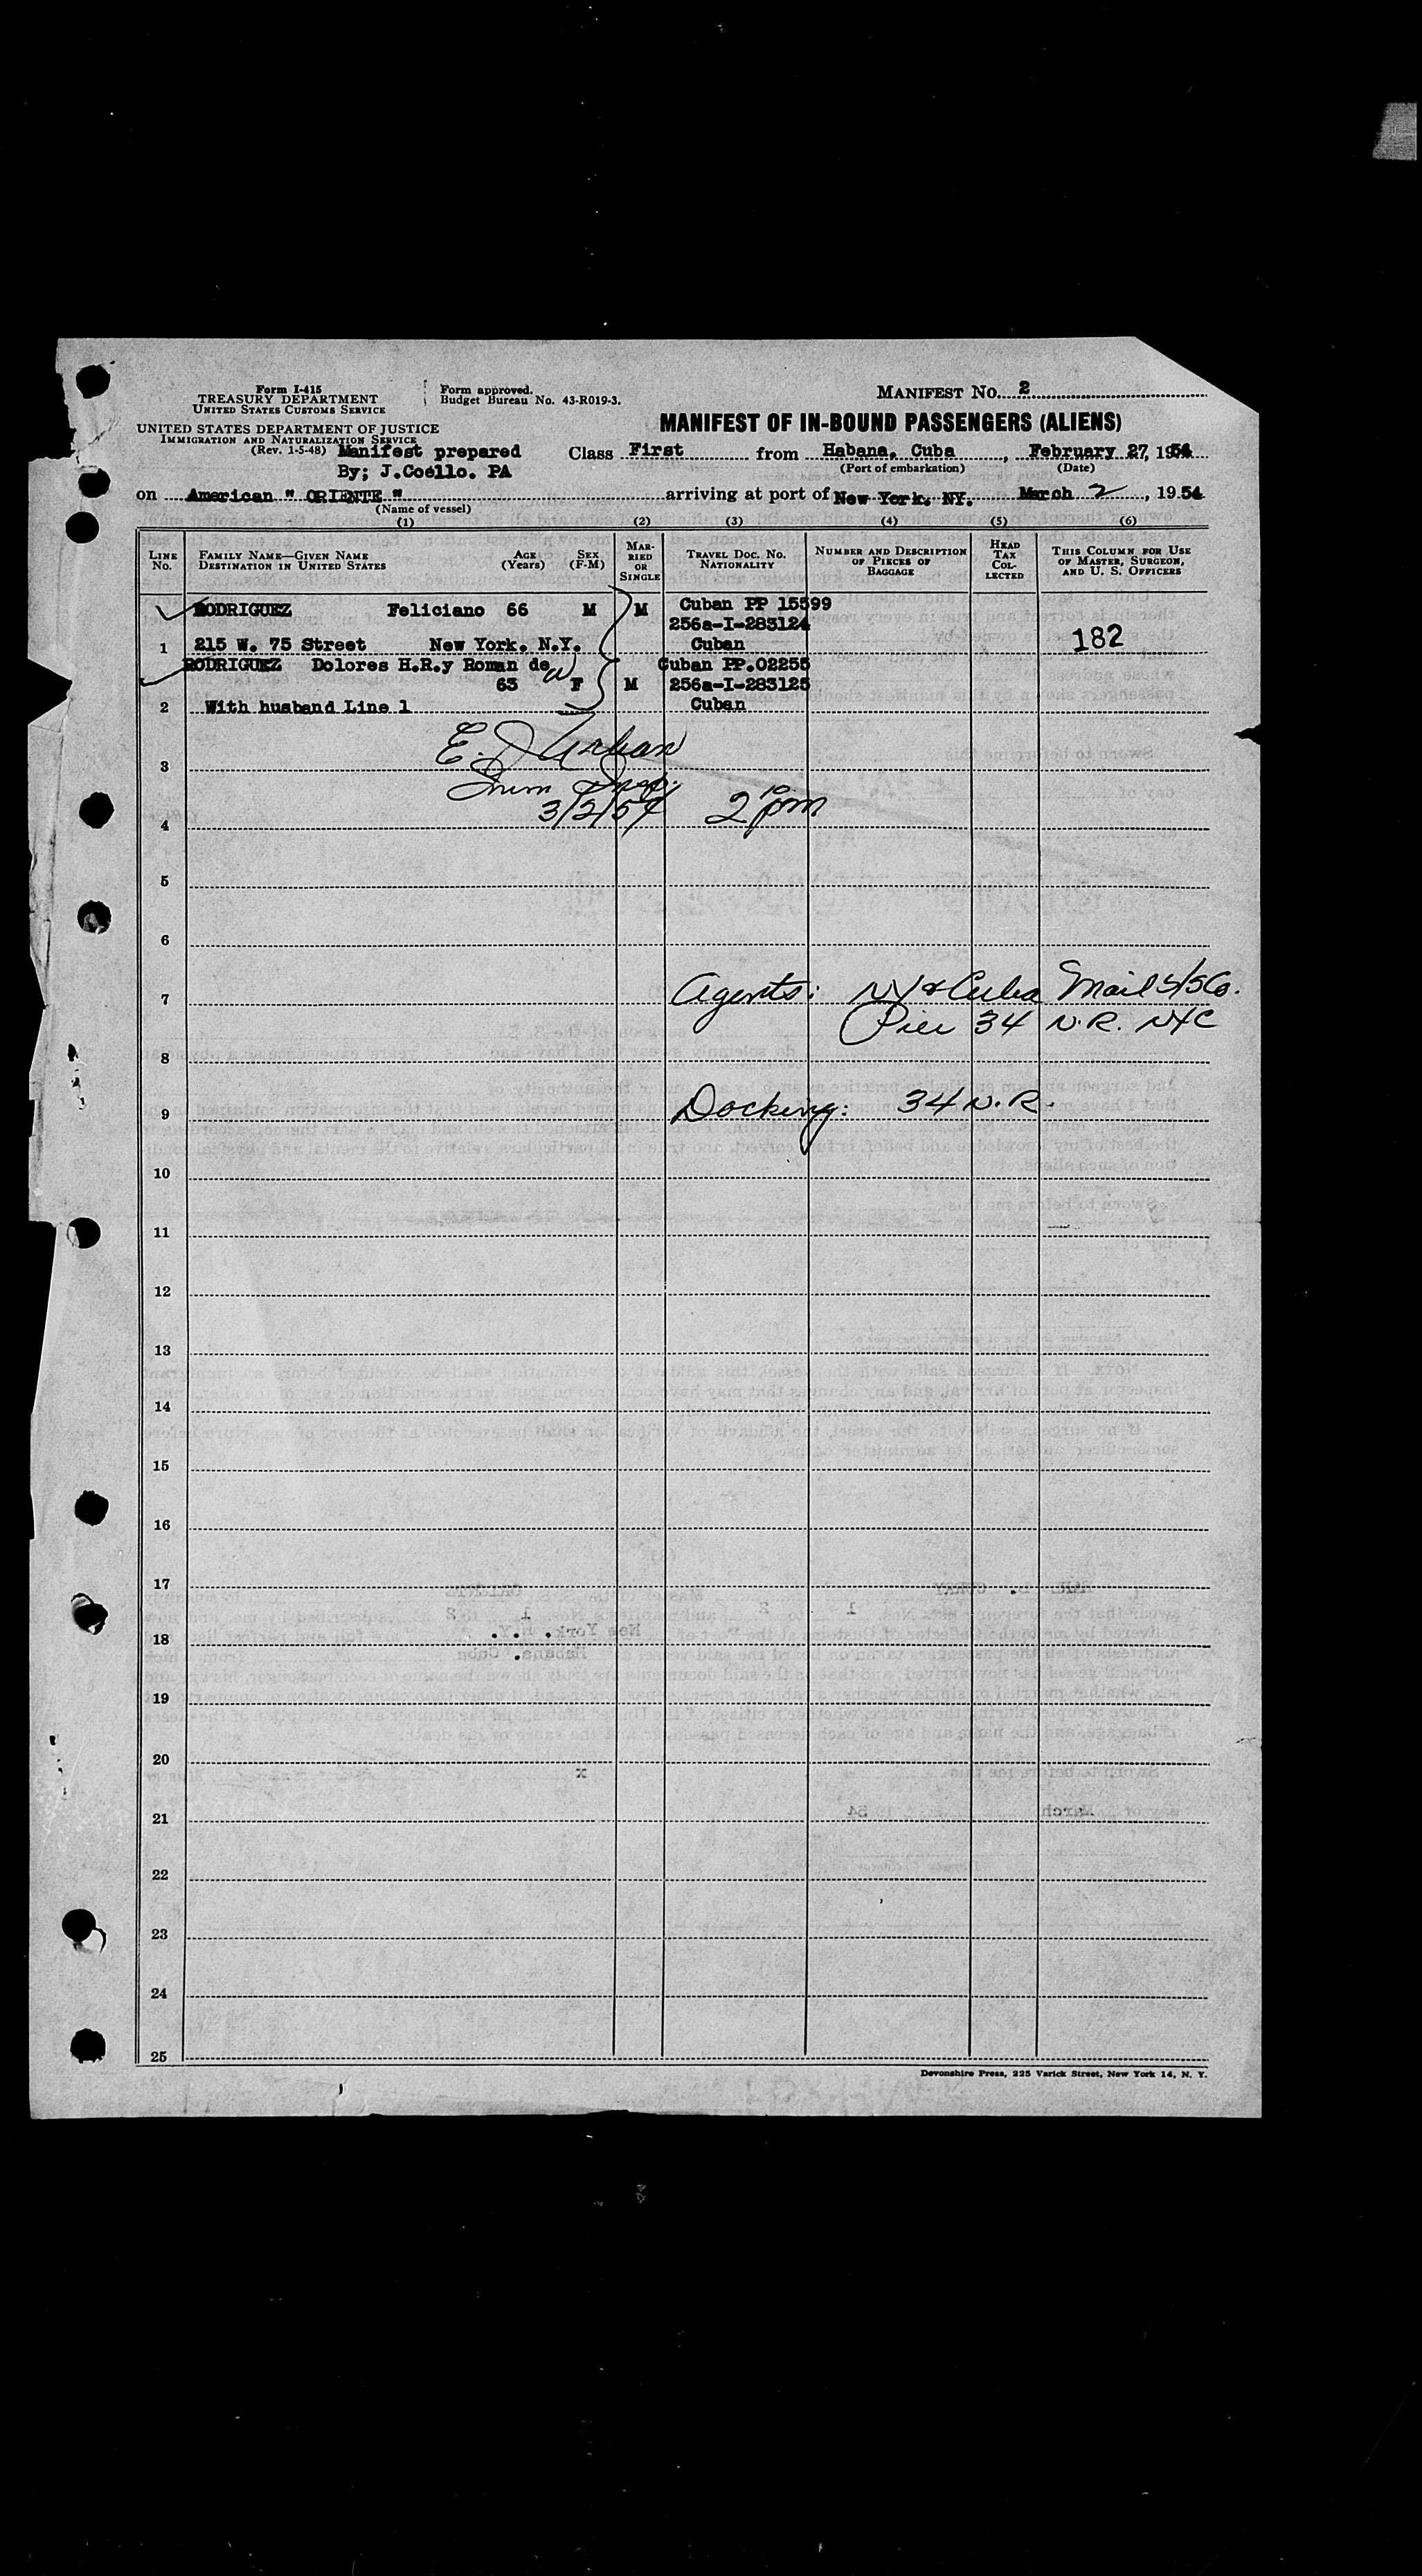 Form I-415
TREASURY DEPARTMENT
UNITED STATES CUSTOMS SERVICE
Form approved.
Budget Bureau No. 43-R019-3.
MANIFEST NO. 2
UNITED STATES DEPARTMENT OF JUSTICE
IMMIGRATION AND NATURALIZATION SERVICE
(Rev. 1-5-48)
MANIFEST OF IN-BOUND PASSENGERS (ALIENS)
Manifest prepared
By; J.Coello. PA
Class First from Habana, Cuba, February 27, 1954
(Port of embarkation) (Date)
on American " ORIENTE " arriving at port of New York. NY. March 2, 1954
(Name of vessel)
(1) (2) (3) (4) (5) (6)
LINE NO.
FAMILY NAME—GIVEN NAME
DESTINATION IN UNITED STATES
AGE (Years)
SEX (F-M)
MARRIED OR SINGLE
TRAVEL DOC. NO.
NATIONALITY
NUMBER AND DESCRIPTION OF PIECES OF BAGGAGE
HEAD TAX COLLECTED
THIS COLUMN FOR USE OF MASTER, SURGEON, AND U. S. OFFICERS
RODRIGUEZ Feliciano 66 M M Cuban PP 15599
256a-I-283124
1 215 W. 75 Street New York. N.Y. Cuban 182
RODRIGUEZ Dolores H.R.y Roman de Cuban PP.02255
63 F M 256a-I-283125
2 With husband Line 1 Cuban
E. J. Urban
3
Imm Insp.
3/2/54 2 10 pm
4
5
6
Agents: NY & Cuba Mail S/S Co.
7
Pier 34 N.R. NYC
8
Docking: 34 N.R.
9
10
11
12
13
14
15
16
17
18
19
20
21
22
23
24
25
Devonshire Press, 225 Varick Street, New York 14, N. Y.